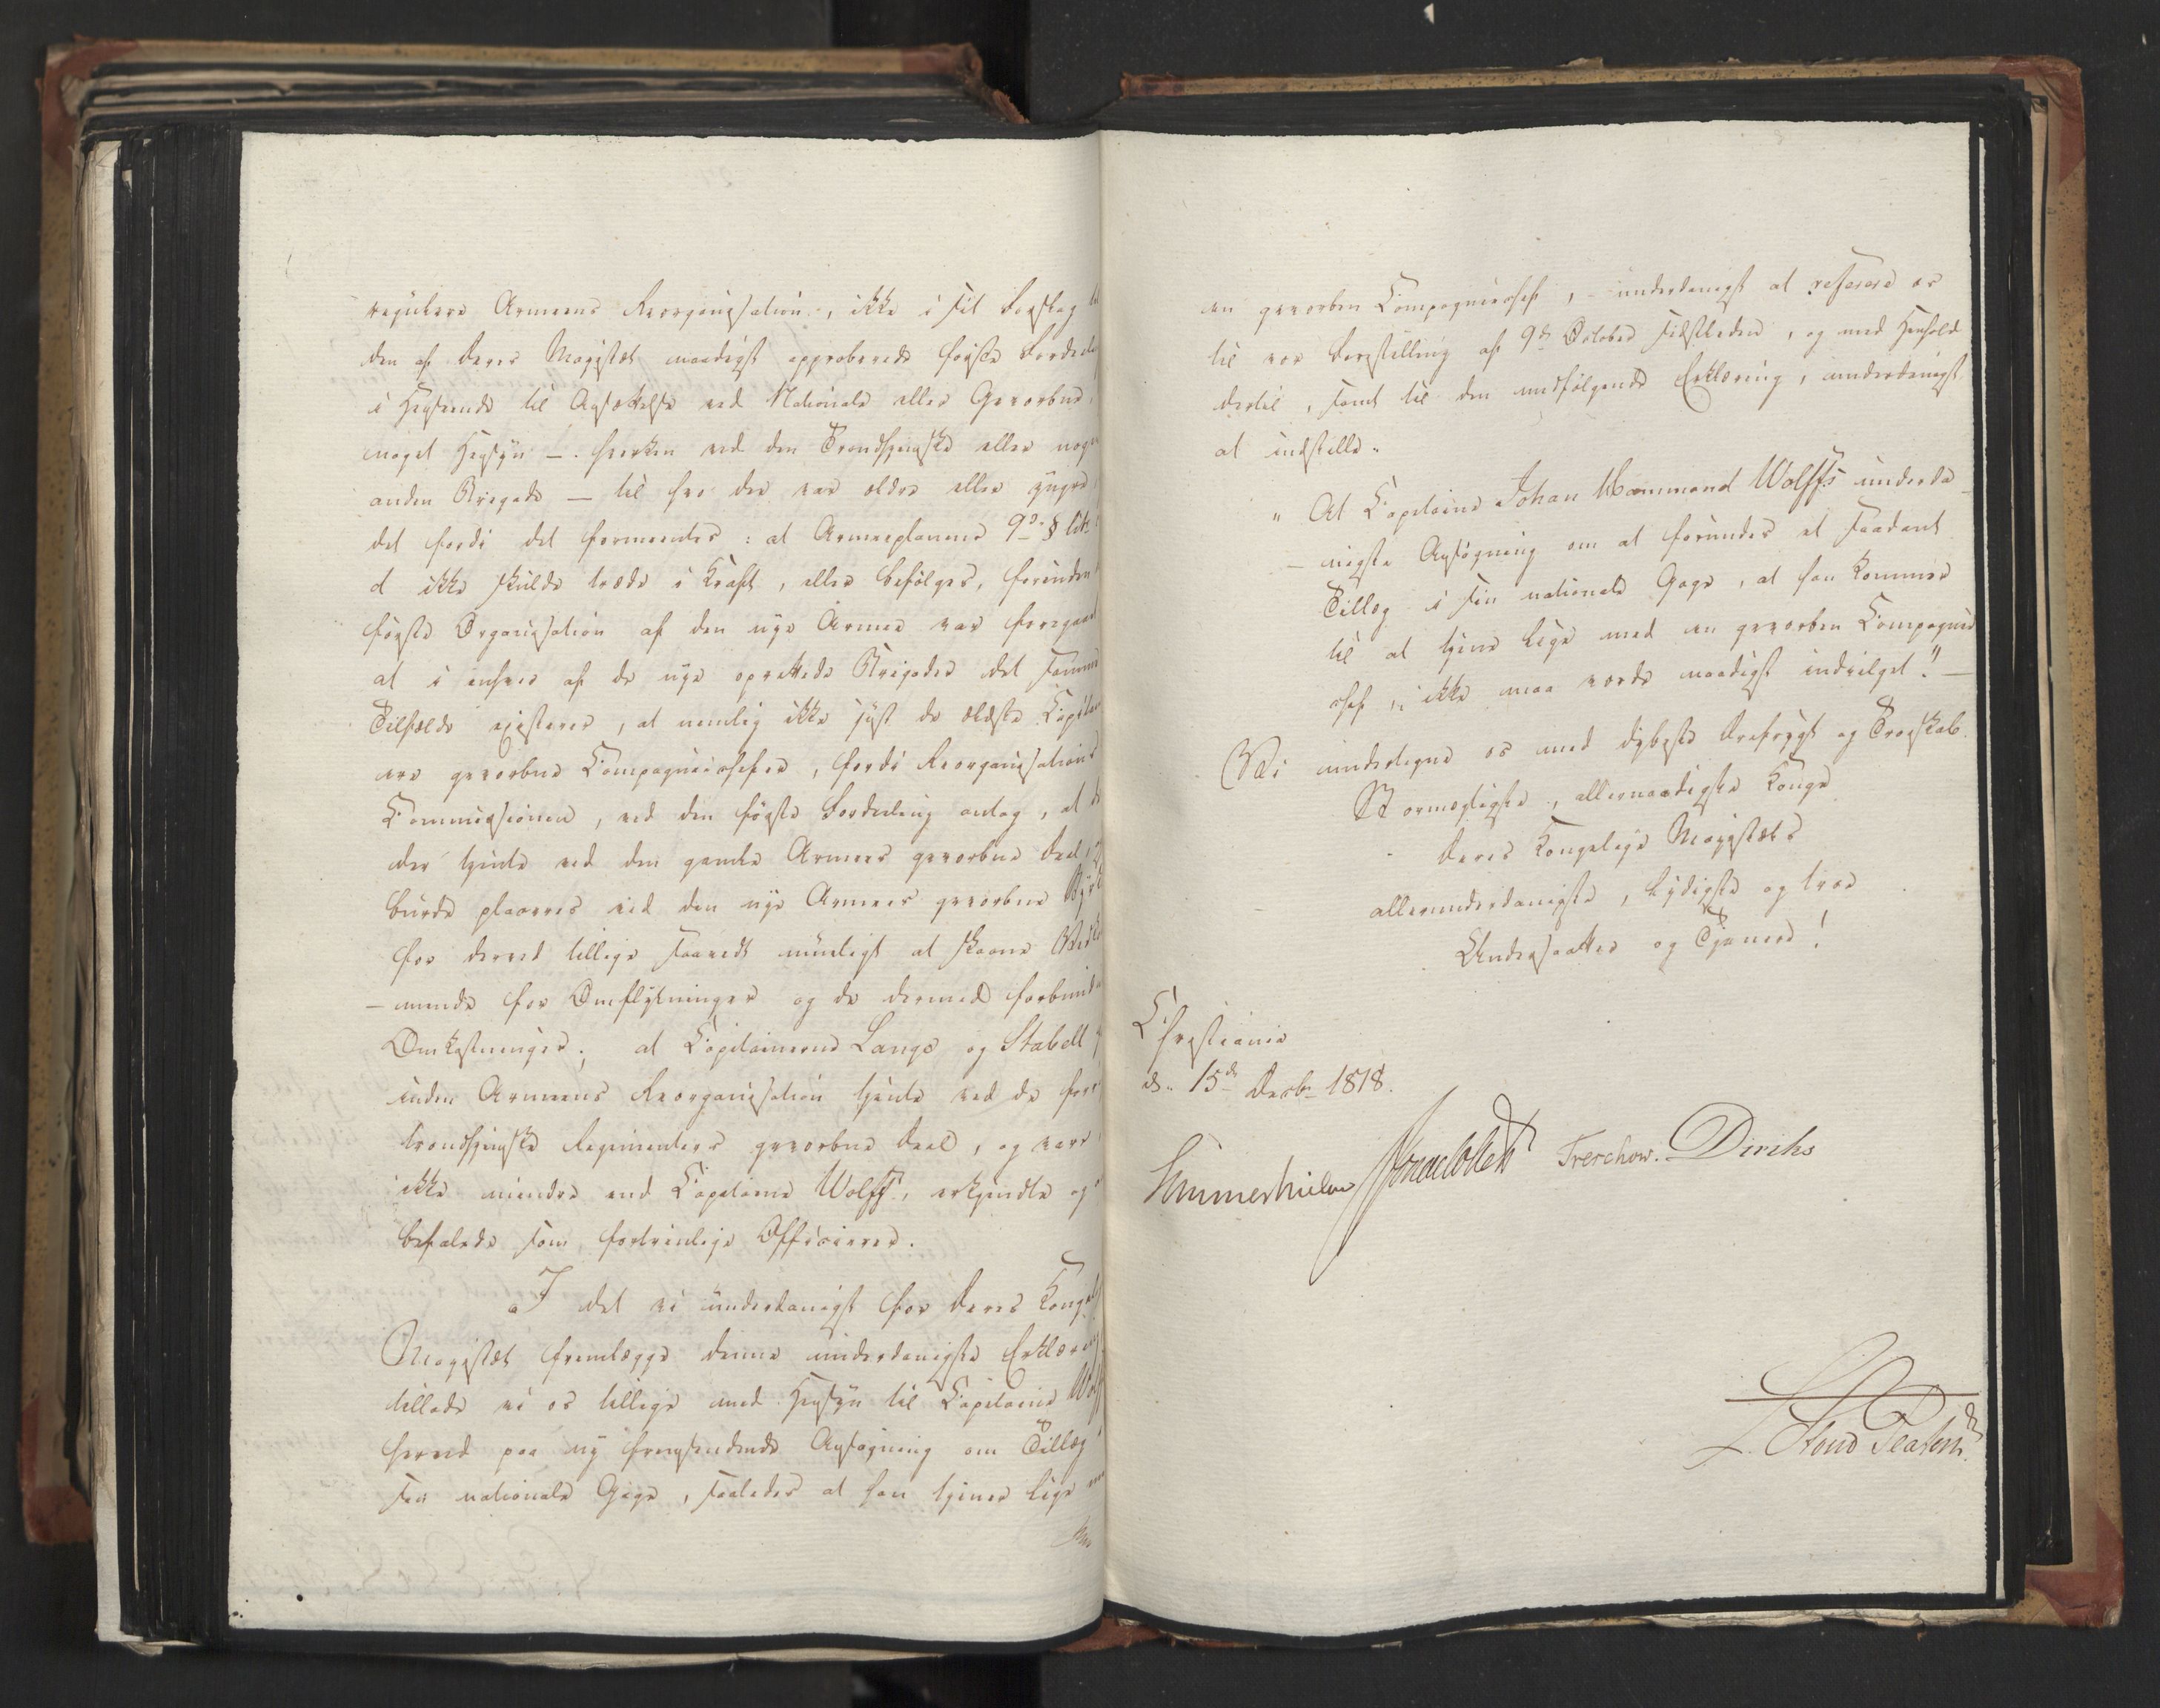 regulere Armeens Reorganisation, ikke i sit Forslag til
den af Deres Majestæt naadigst approberede første Fordeling
i Henseende til Ansættelse ved Nationale eller Gevorbne,
noget Hensyn — hverken ved den Trondhjemske eller nogen
anden Brigade — til hvo der var ældre eller yngre,
det fordi det formeentes: at Armeeplanens 9de § litr
d ikke skulde træde i Kraft, eller befølges, forinden
første Organisation af den nye Armee var foregaaet
at i enhver af de nye oprettede Brigader det samme
Tilfælde existerer, at nemlig ikke just de ældste Capitainer
ere gevorbne Compagniechefer, fordi Reorganisations
Commissionen, ved den første Fordeling antog, at de
der tjente ved den gamle Armees gevorbne Deel,
burde placeres ved den nye Armees gevorbne Styrke
for derved tillige saavidt mueligt at skaane Vedkom
-mende for Omflytninger og de dermed forbundne
Omkostninger; at Capitainerne Lange og Stabell
inden Armeens Reorganisation tjente ved de forrige
trondhjemske Regimenters gevorbne Deel, og vare
ikke mindre end Capitaine Wolff, erkjendte og
befalede som fortrinlige Officierer.
I det vi underdanigst for Deres Kongelige
Majestæt fremlægge denne underdanigste Erklæring
tillade vi os tillige med Hensyn til Capitaine Wolffs
herved paa ny fremsendende Ansøgning om Tillæg i
sin nationale Gage, saaledes at han tjener lige med
en gevorben Compagniechef, underdanigst at referere os
til vor Forestilling af 9de October sidstleden, og med Henhold
dertil, samt til den medfølgende Erklæring, underdanigst
at indstille:
" At Capitaine Johan Hammond Wolffs underda
- nigste Ansøgning om at forundes et saadant
Tillæg i sin nationale Gage, at han kommer
til at tjene lige med en gevorben Compagnie
chef, ikke maa vorde naadigst indvilget." —
Vi undertegne os med dybeste Ærefrygt og Troeskab.
Stormægtigste, allernaadigste Konge
Deres Kongelige Majestæts
allerunderdanigste, lydigste og troe
Undersaatter og Tjenere!
Christiania
d. 15de Decbr 1818.
Hummerhielm Treschow. Diriks